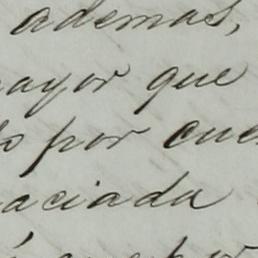 ademas,
ayor que
o por cue
aciada